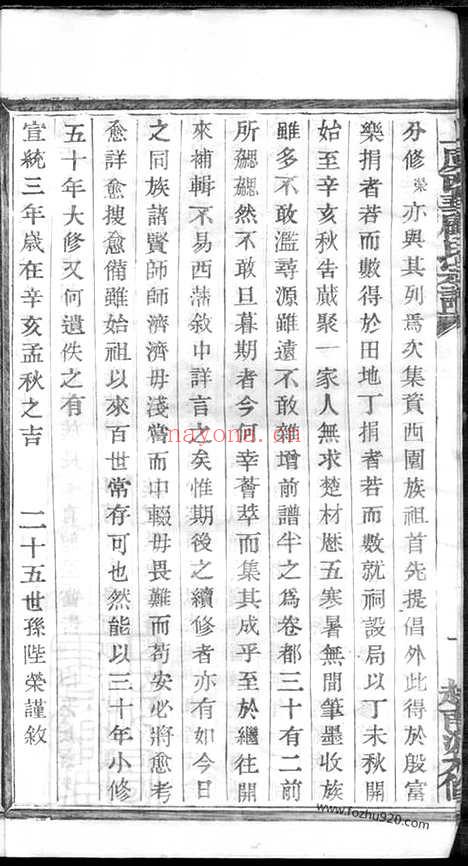 分修榮亦與其列爲次集資西園族祖首先提倡外此得於殷富
樂捐者若而數得於田地丁捐者若而數就祠設局以丁未秋開
始至辛亥秋告蕆聚一家人無求楚材歷五寒暑無間筆墨收族
雖多不敢濫尋源雖遠不敢雜增前譜半之爲卷都三十有二前
所鰓鰓然不敢旦暮期者今何幸薈萃而集其成乎至於繼往開
來補輯不易西藩敘中詳言之矣惟期後之續修者亦有如今日
之同族諸賢師師濟濟毋淺嘗而中輟毋畏難而苟安必將愈考
愈詳愈搜愈備雖始祖以來百世常存可也然能以三十年小修
五十年大修又何遺佚之有
宣統三年歲在辛亥孟秋之吉 二十五世孫陛榮謹敘
nayona.cn
www.fozhu920.com